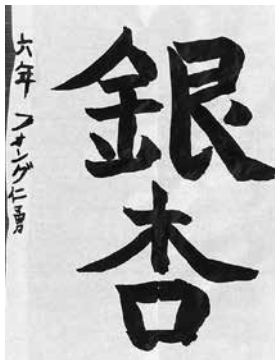 銀杏
六年 フォング仁勇